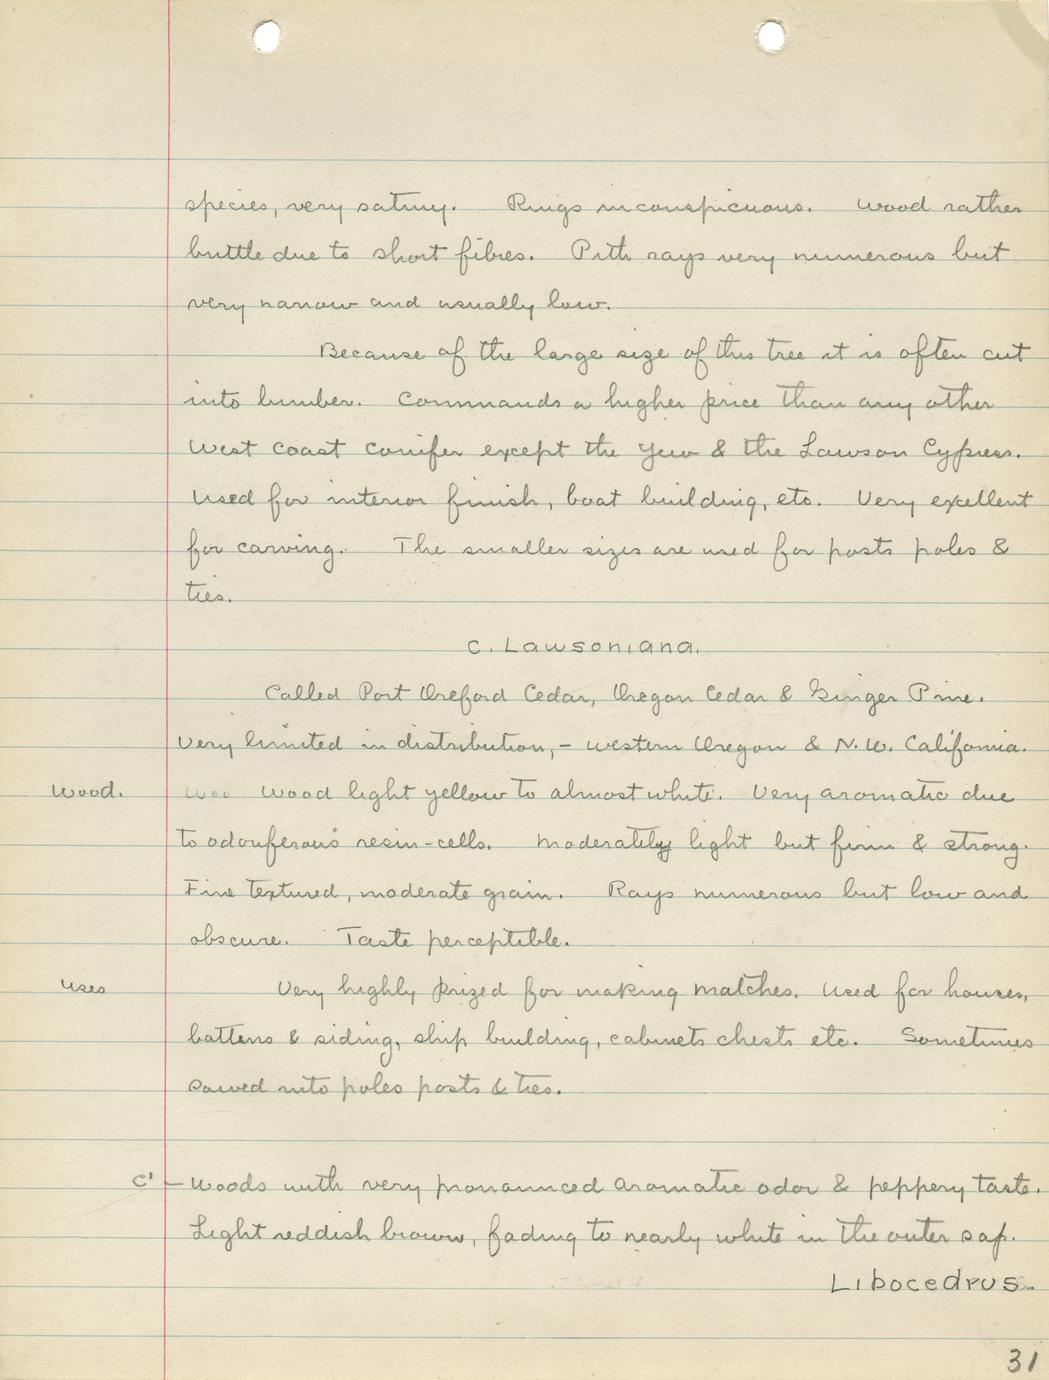 species, very satiny. Rings inconspicuous. Wood rather
brittle due to short fibres. Pith rays very numerous but
very narrow and usually low.
Because of the large size of this tree it is often cut
into lumber. Commands a higher price than any other
West coast conifer except the Yew & the Lawson Cypress.
Used for interior finish, boat building, etc. Very excellent
for carving. The smaller sizes are used for posts poles &
ties.
C. Lawsoniana.
Called Port Oreford Cedar, Oregon Cedar & Ginger Pine.
Very limited in distribution, - western Oregon & N.W. California.
Wood. Woo Wood light yellow to almost white. Very aromatic due
to odoriferous resin-cells. Moderately light but firm & strong.
Fine textured, moderate grain. Rays numerous but low and
obscure. Taste perceptible.
Uses Very highly prized for making matches. Used for houses,
battens & siding, ship building, cabinets chests etc. Sometimes
sawed into poles posts & ties.
C' - Woods with very pronounced aromatic odor & peppery taste.
Light reddish brown, fading to nearly white in the outer sap.
Libocedrus.
31